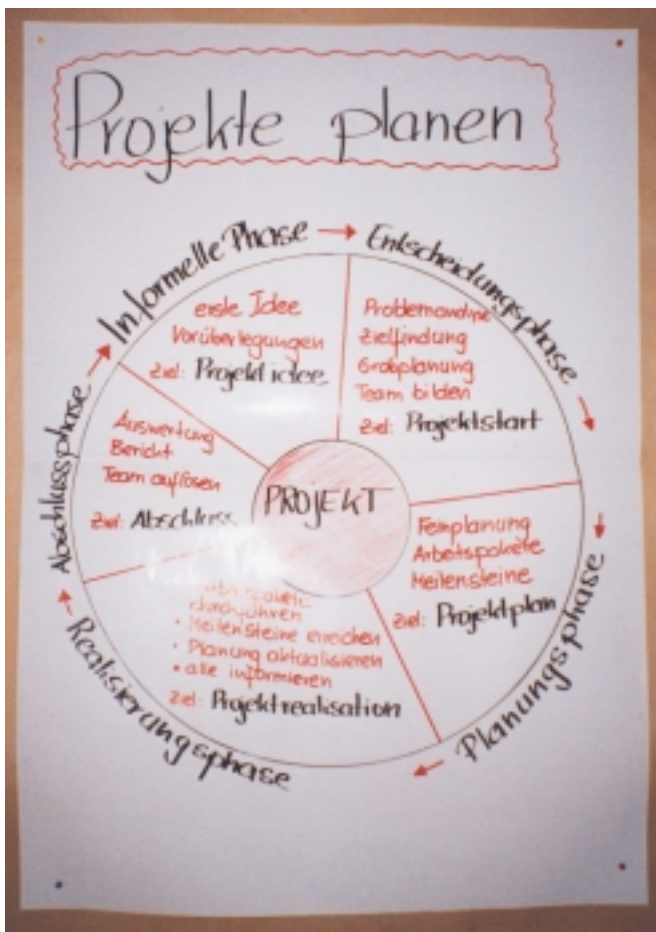 Projekte planen
Informelle Phase
erste Idee
Vorüberlegungen
Ziel: Projektidee
Entscheidungsphase
Problemanalyse
Zielfindung
Grobplanung
Team bilden
Ziel: Projektstart
Planungsphase
Feinplanung
Arbeitspakete
Meilensteine
Ziel: Projektplan
Realisierungsphase
durchführen
• Meilensteine erreichen
• Planung aktualisieren
• alle informieren
Ziel: Projektrealisation
Abschlussphase
Auswertung
Bericht
Team auflösen
Ziel: Abschluss
PROJEKT